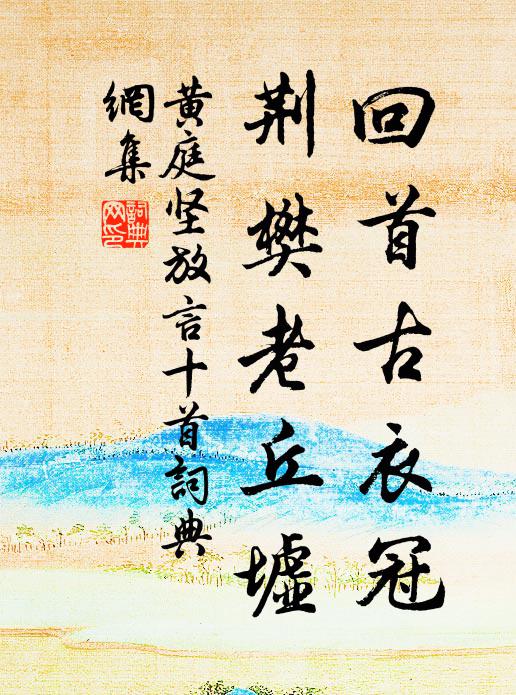 回首古衣冠
荆樊老丘墟
黄庭坚放言十首詞典
網集
詞典
网印